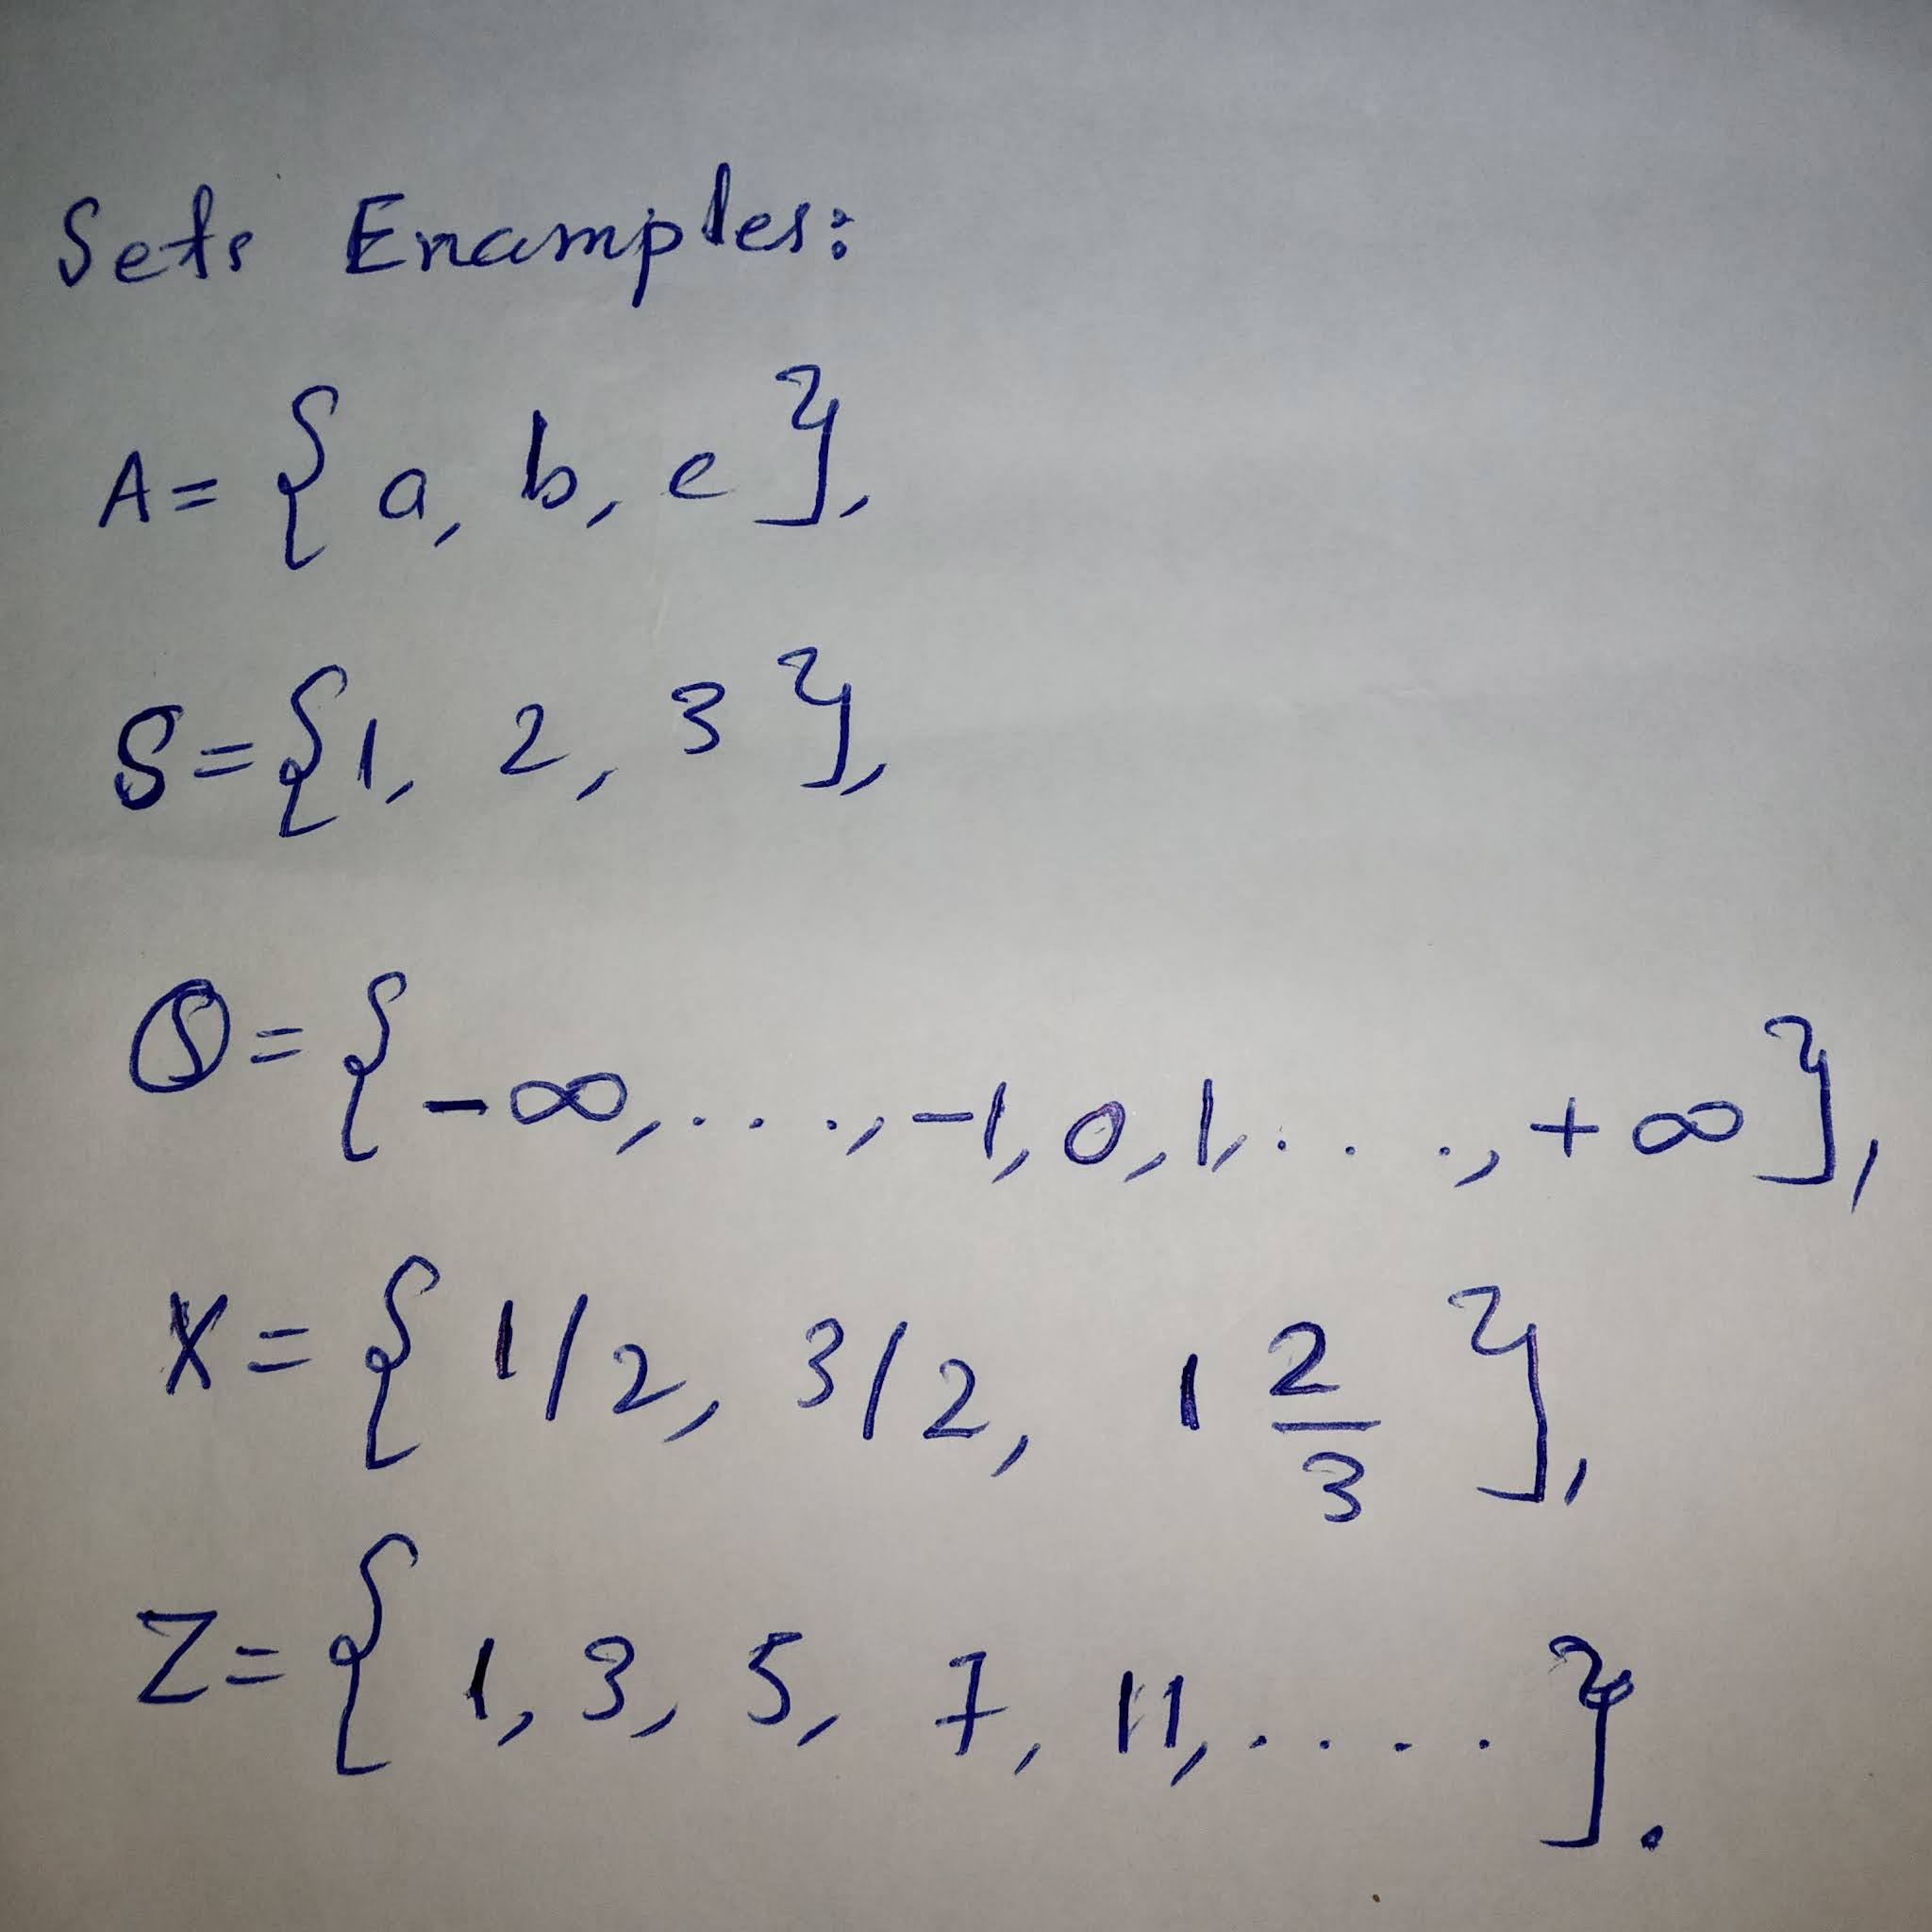 Sets Examples:
A = { a, b, c },
S = { 1, 2, 3 },
= { -∞, . . ., -1, 0, 1, . . ., +∞ },
X = { 1/2, 3/2, 1 2/3 },
Z = { 1, 3, 5, 7, 11, . . . . }.